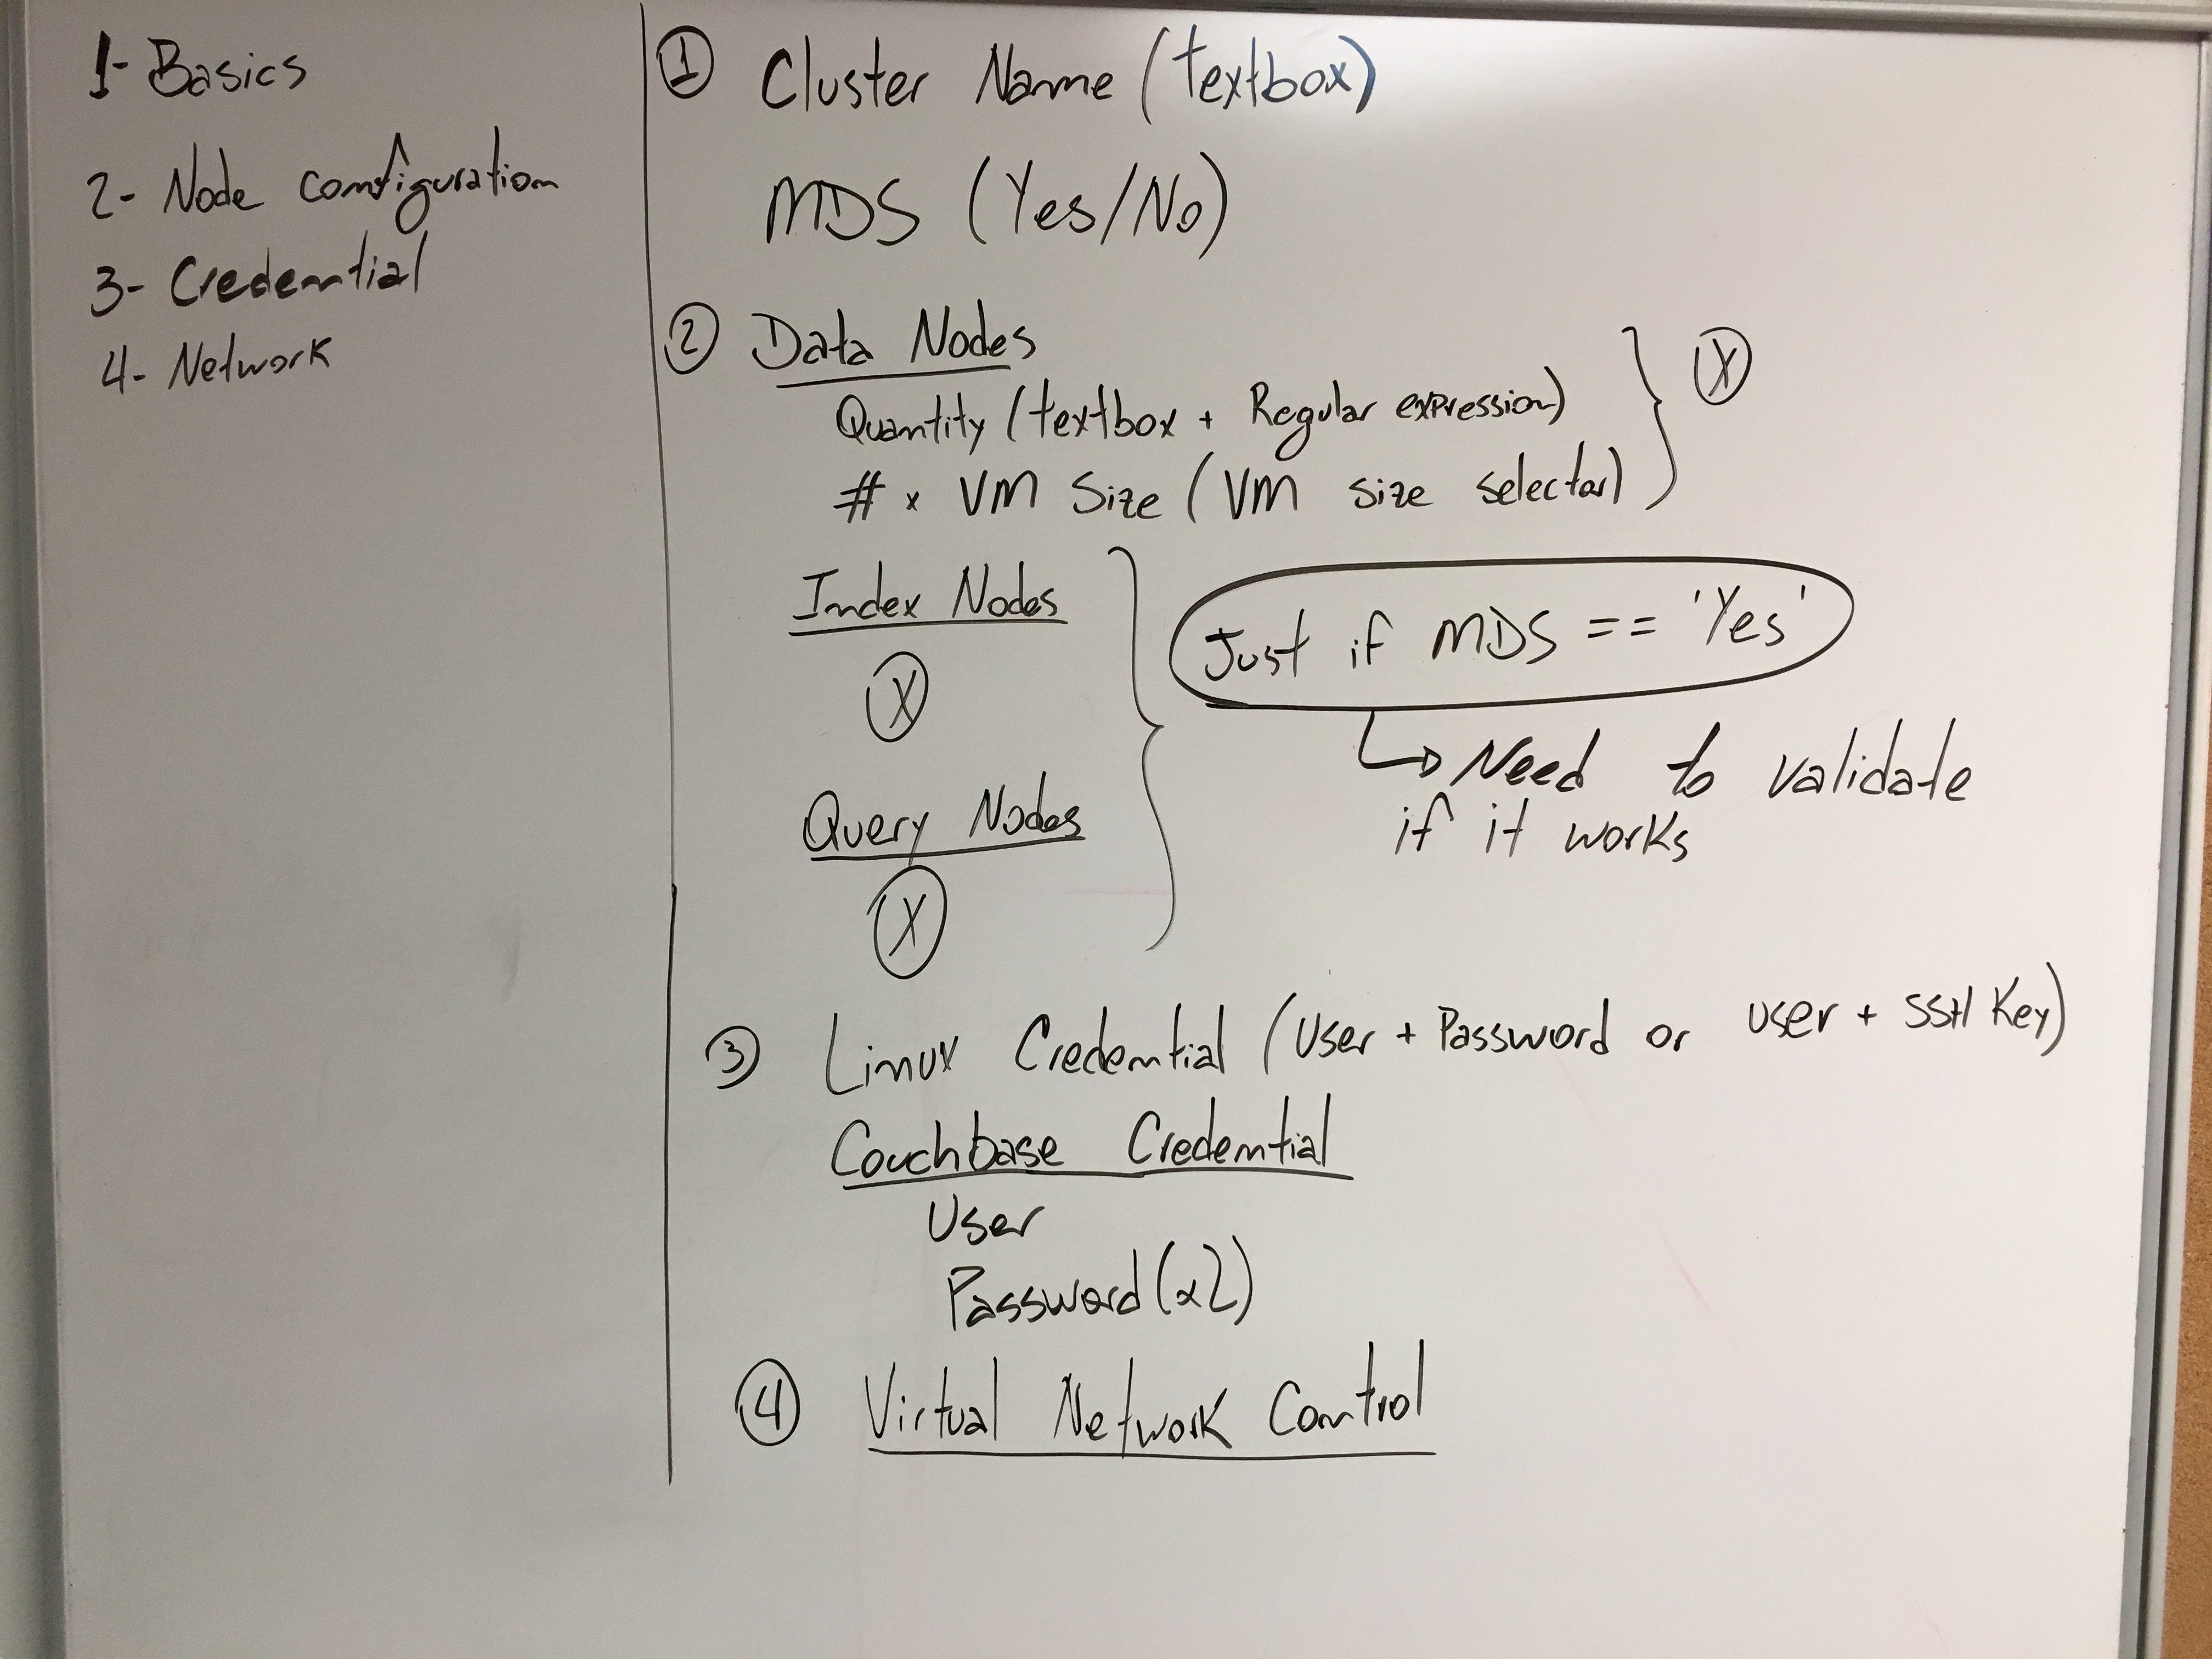 1- Basics
2- Node configuration
3- Credential
4- Network
① Cluster Name (textbox)
MDS (Yes/No)
② Data Nodes
Quantity (textbox + Regular expression)
# x VM Size (VM size selector)
Ⓧ
Index Nodes
Ⓧ
Query Nodes
Ⓧ
Just if MDS == 'Yes'
Need to validate
if it works
③ Linux Credential (User + Password or user + SSH Key)
Couchbase Credential
User
Password (x2)
④ Virtual Network Control